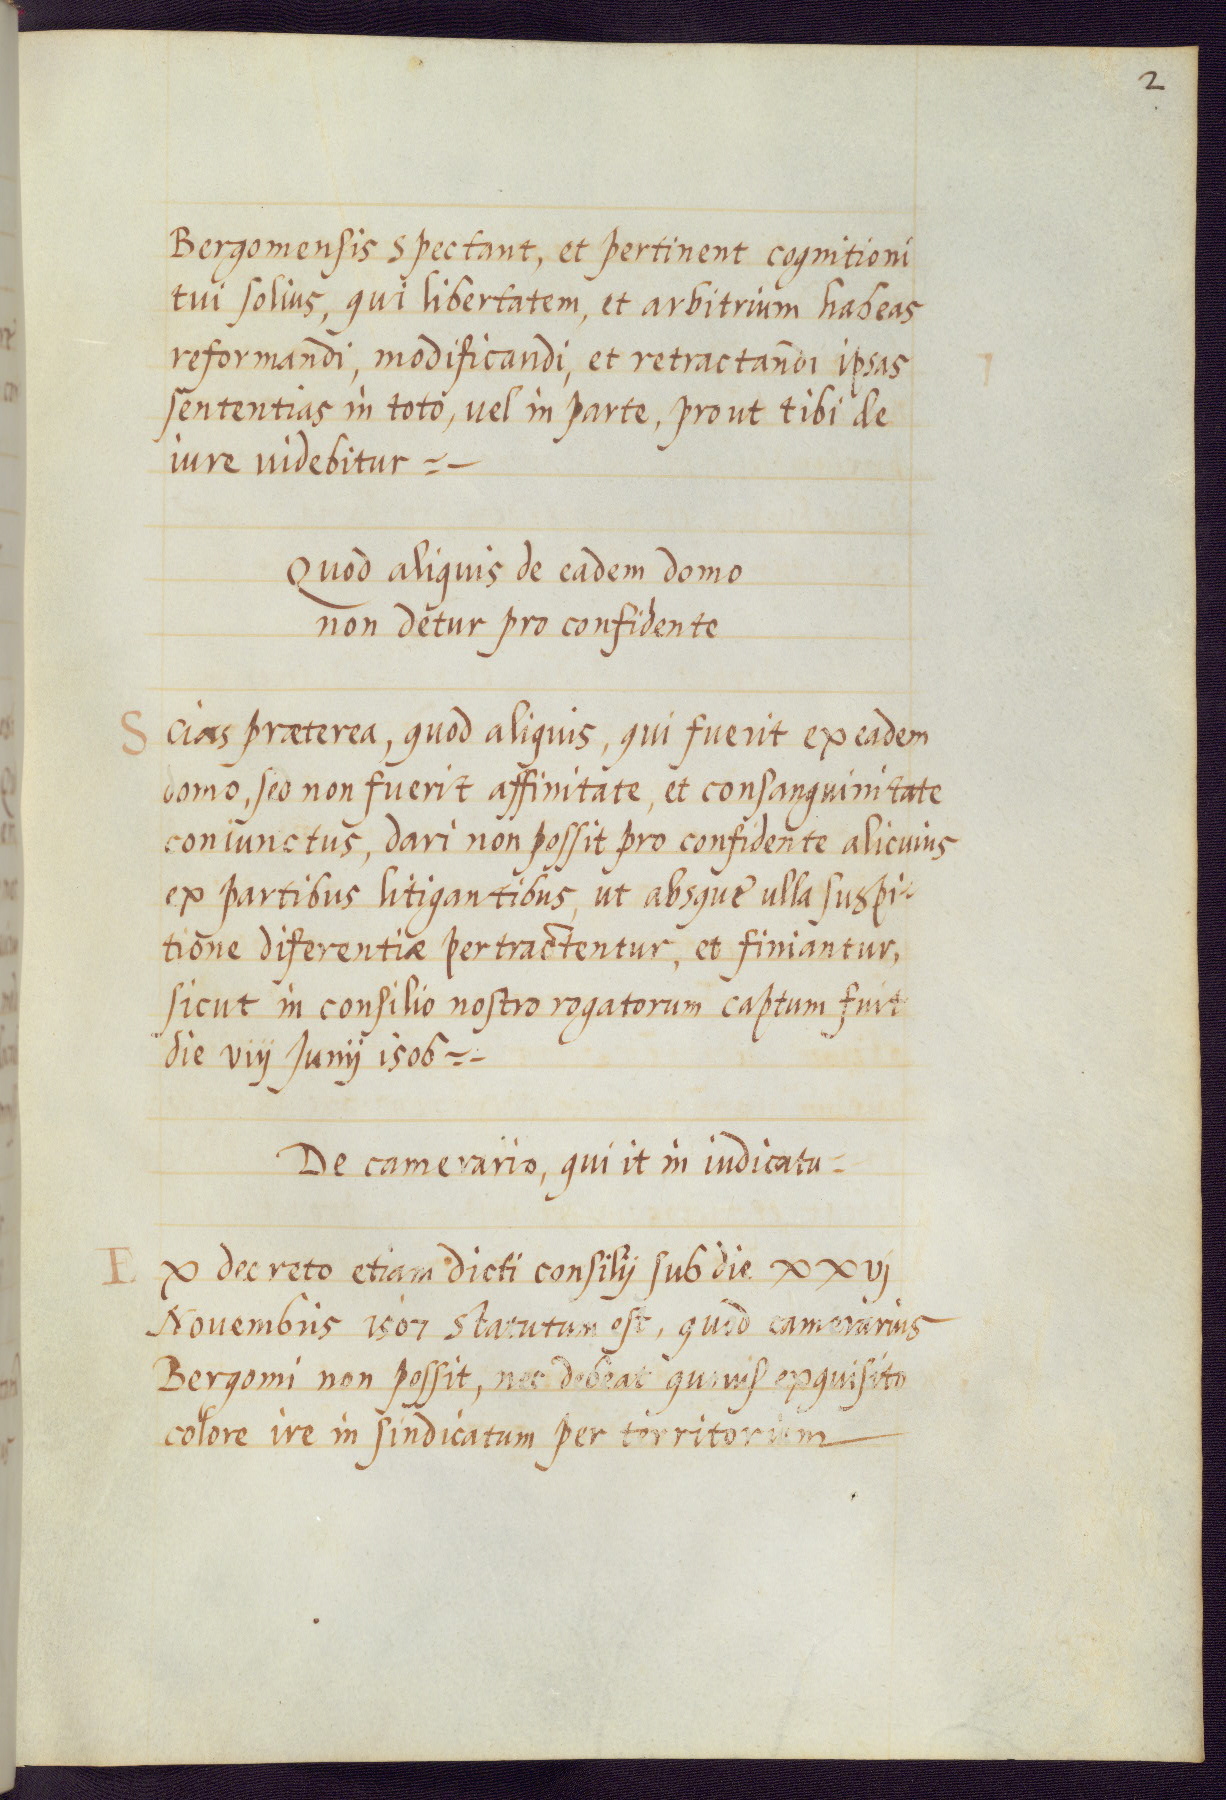 2
Bergomensis spectant, et pertinent cognitioni
tui solius, qui libertatem, et arbitrium habeas
reformandi, modificandi, et retractandi ipsas
sententias in toto, vel in parte, prout tibi de
iure uidebitur =-
Quod aliquis de eadem domo
non detur pro confidente
Scias præterea, quod aliquis, qui fuerit ex eadem
domo, sed non fuerit affinitate, et consanguinitate
coniunctus, dari non possit pro confidente alicuius
ex partibus litigantibus, ut absque ulla suspi-
tione diferentiæ pertractentur, et finiantur,
sicut in consilio nostro rogatorum captum fuit
die viij Junij 1506 =-
De camerario, qui it in iudicatu =
Ex decreto etiam dicti consilij sub die xxvj
Novembris 1507 statutum est, quod camerarius
Bergomi non possit, nec debeat quouis exquisito
colore ire in sindicatum per territorium